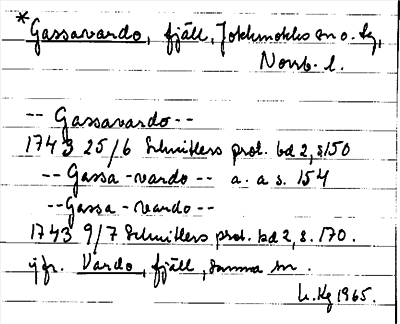 * Gassavardo, fjäll, Jokkmokks sn o. tg,
Norrb. l.
-- Gassavardo --
1743 25/6 Schnitlers prot. bd 2, s 150
-- Gassa-vardo -- a. a s. 154
-- Gassa-vardo --
1743 9/7 Schnitlers prot. bd 2, s. 170.
jfr. Vardo, fjäll, samma sn.
Kg 1965.